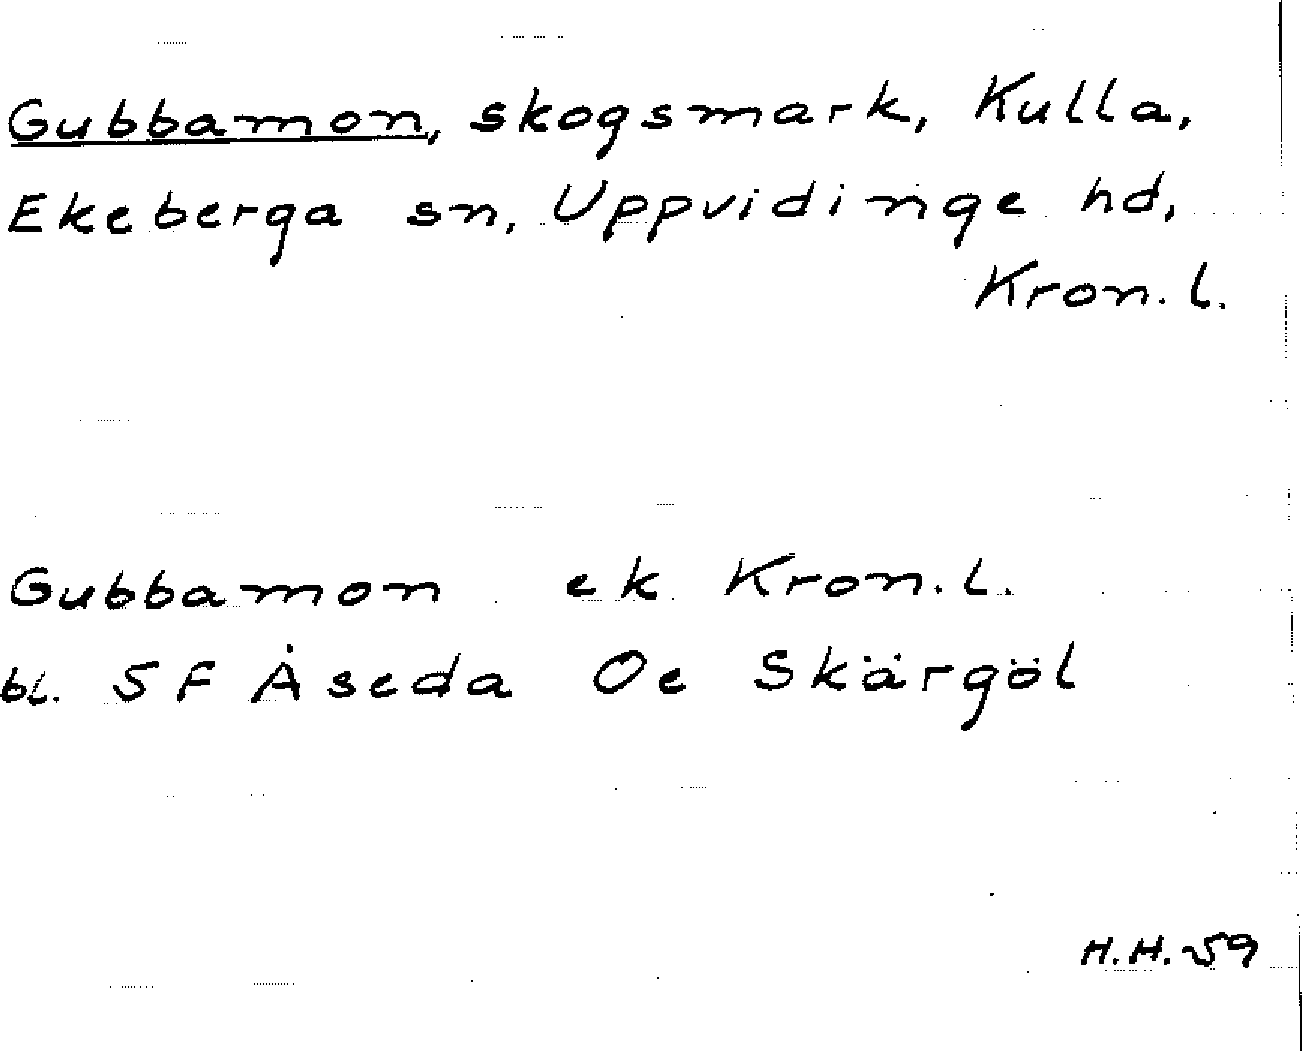 Gubbamon, skogsmark, Kulla,
Ekeberga sn, Uppvidinge hd,
Kron. l.
Gubbamon ek Kron. l.
bl. 5 F Åseda Oe Skärgöl
H.H. -59